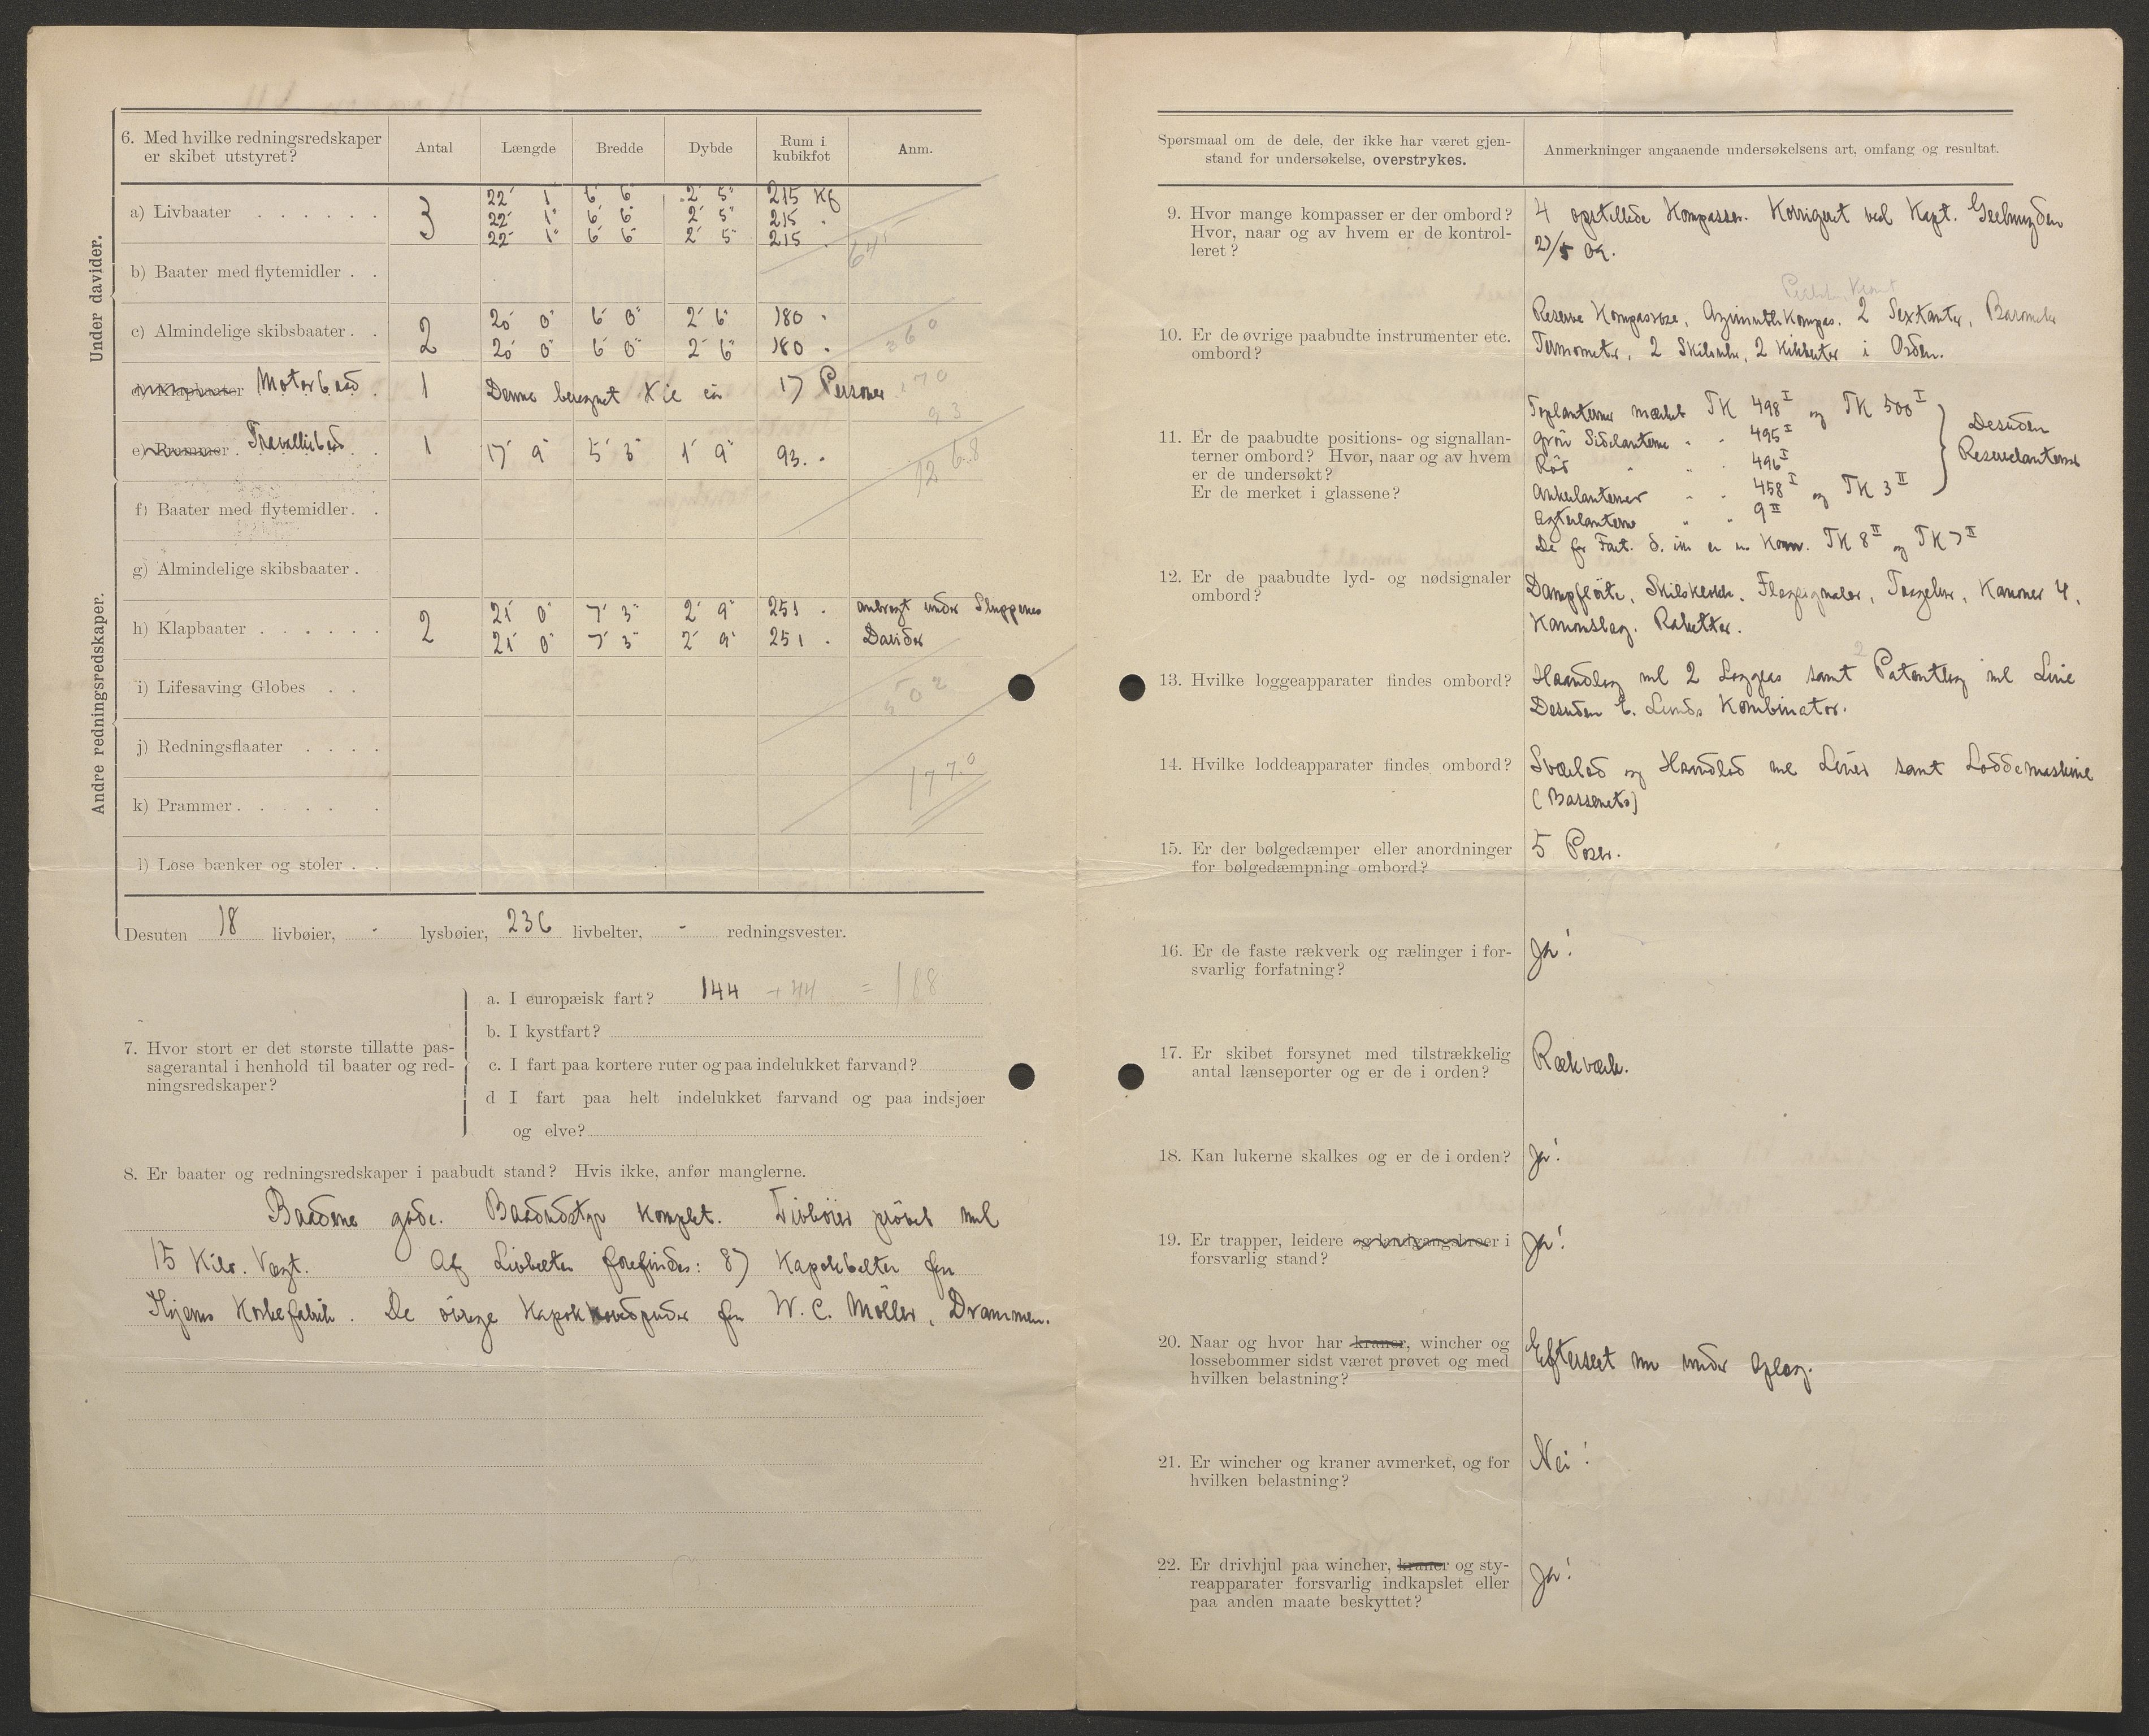 6. Med hvilke redningsredskaper
er skibet utstyret?
Antal
Længde
Bredde
Dybde
Rum i
kubikfot
Anm.
Under davider.
a) Livbaater . . . . . .
3
22' 1" 6' 6" 2' 5" 215 Kf
22' 1" 6' 6" 2' 5" 215 "
22' 1" 6' 6" 2' 5" 215 "
645
b) Baater med flytemidler . .
c) Almindelige skibsbaater . .
2
20' 0" 6' 0" 2' 6" 180 "
20' 0" 6' 0" 2' 6" 180 "
360
d) Klapbaater Motorbaad 1 Denne beregnet 17 Personer 170
e) Prammer. Travalliebaad 1 17' 9" 5' 3" 1' 9" 93. "
93
1268
Andre redningsredskaper.
f) Baater med flytemidler. .
g) Almindelige skibsbaater .
h) Klapbaater . . . . . .
2
21' 0" 7' 3" 2' 9" 251 " anbragt under Sluppenes
21' 0" 7' 3" 2' 9" 251 " Davider
502
i) Lifesaving Globes . .
j) Redningsflaater . . . .
1770
k) Prammer . . . . . .
l) Løse bænker og stoler . .
Desuten 18 livbøier, - lysbøier, 236 livbelter, - redningsvester.
7. Hvor stort er det største tillatte pas-
sagerantal i henhold til baater og red-
ningsredskaper?
a. I europæisk fart? 144 + 44 = 188
b. I kystfart?
c. I fart paa kortere ruter og paa indelukket farvand?
d I fart paa helt indelukket farvand og paa indsjøer
og elve?
8. Er baater og redningsredskaper i paabudt stand? Hvis ikke, anfør manglerne.
Baadene gode. Baadudstyr komplet. Livböier prövet med
15 Kilo. Vægt. Af Livbelter forefindes: 87 Kapokbelter fra
Hjerns Korkefabrik. De övrige Kapokhovedpuder fra W. C. Möller, Drammen.
Spørsmaal om de dele, der ikke har været gjen-
stand for undersøkelse, overstrykes.
Anmerkninger angaaende undersøkelsens art, omfang og resultat.
9. Hvor mange kompasser er der ombord?
Hvor, naar og av hvem er de kontrol-
leret?
4 opstillede Kompasser. Korrigeret ved Kapt. Geelmuyden
27/5 09.
10. Er de øvrige paabudte instrumenter etc.
ombord?
Reserve Kompasrose, Azimuthkompas. 2 Sextanter, Barometer
Termometer, 2 Skibsuhr, 2 Kikkerter i Orden.
11. Er de paabudte positions- og signallan-
terner ombord? Hvor, naar og av hvem
er de undersøkt?
Er de merket i glassene?
Toplanterner mærket TK 498 I og TK 500 I
Grön Sidelanterne " " 495 I
Röd " " " 496 I
Ankerlanterner " " 458 I og TK 3 II
Agterlanterne " " 9 II
De for Fart. d. ikke er u. Komm. TK 8 II og TK 7 II
Desuden
Reservelanterner
12. Er de paabudte lyd- og nødsignaler
ombord?
Dampflöite, Skibsklokke, Flagsignaler, Taagelur, Kanoner 4,
Kanonslag. Raketter.
13. Hvilke loggeapparater findes ombord?
Haandlog med 2 Logglas samt 2 Patentlog med Line
Desuden E. Lunds Kombinator.
14. Hvilke loddeapparater findes ombord?
Sværlod og Haandlod med Liner samt Loddemaskine
(Bassenets)
15. Er der bølgedæmper eller anordninger
for bølgedæmpning ombord?
5 Poser.
16. Er de faste rækverk og rælinger i for-
svarlig forfatning?
Ja!
17. Er skibet forsynet med tilstrækkelig
antal lænseporter og er de i orden?
Rækværk.
18. Kan lukerne skalkes og er de i orden?
Ja!
19. Er trapper, leidere og landgangsbroer i
forsvarlig stand?
Ja!
20. Naar og hvor har kraner, wincher og
lossebommer sidst været prøvet og med
hvilken belastning?
Efterseet nu under Oplag.
21. Er wincher og kraner avmerket, og for
hvilken belastning?
Nei!
22. Er drivhjul paa wincher, kraner og sty-
reapparater forsvarlig indkapslet eller
paa anden maate beskyttet?
Ja!